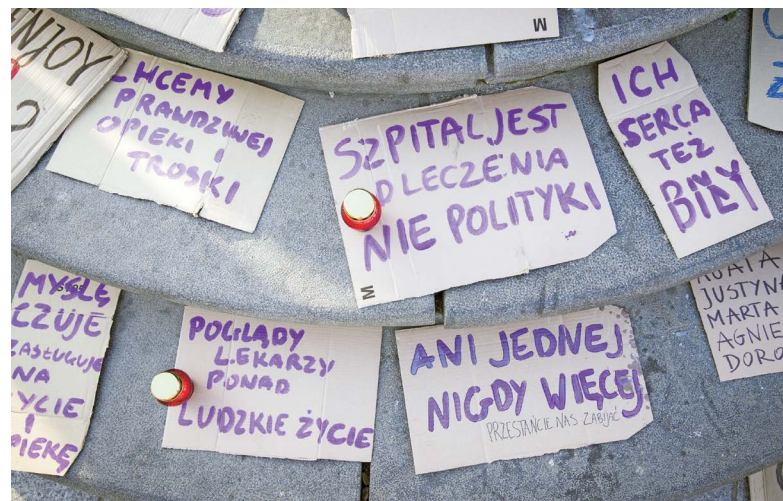 ENJOY
?
CHCEMY
PRAWDZIWEJ
OPIEKI I
TROSKI
M
SZPITAL JEST
LECZENIA
NIE POLITYKI
M
ICH
SERCA
TEŻ
BIŁY
MYŚLĘ
CZUJE
ZASŁUGUJE
NA
I
POGLĄDY
LEKARZY
PONAD
LUDZKIE ŻYCIE
ANI JEDNEJ
NIGDY WIĘCEJ
PRZESTAŃCIE NAS ZABIJAĆ
AGATA
JUSTYNA
MARTA
AGNIE
DORO